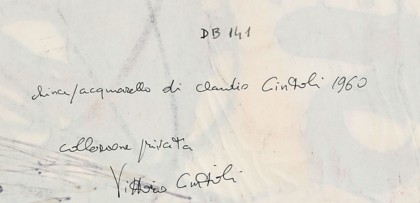 DB 141
china/acquarello di claudio Cintoli 1960
collezione privata
Vittoria Cintoli